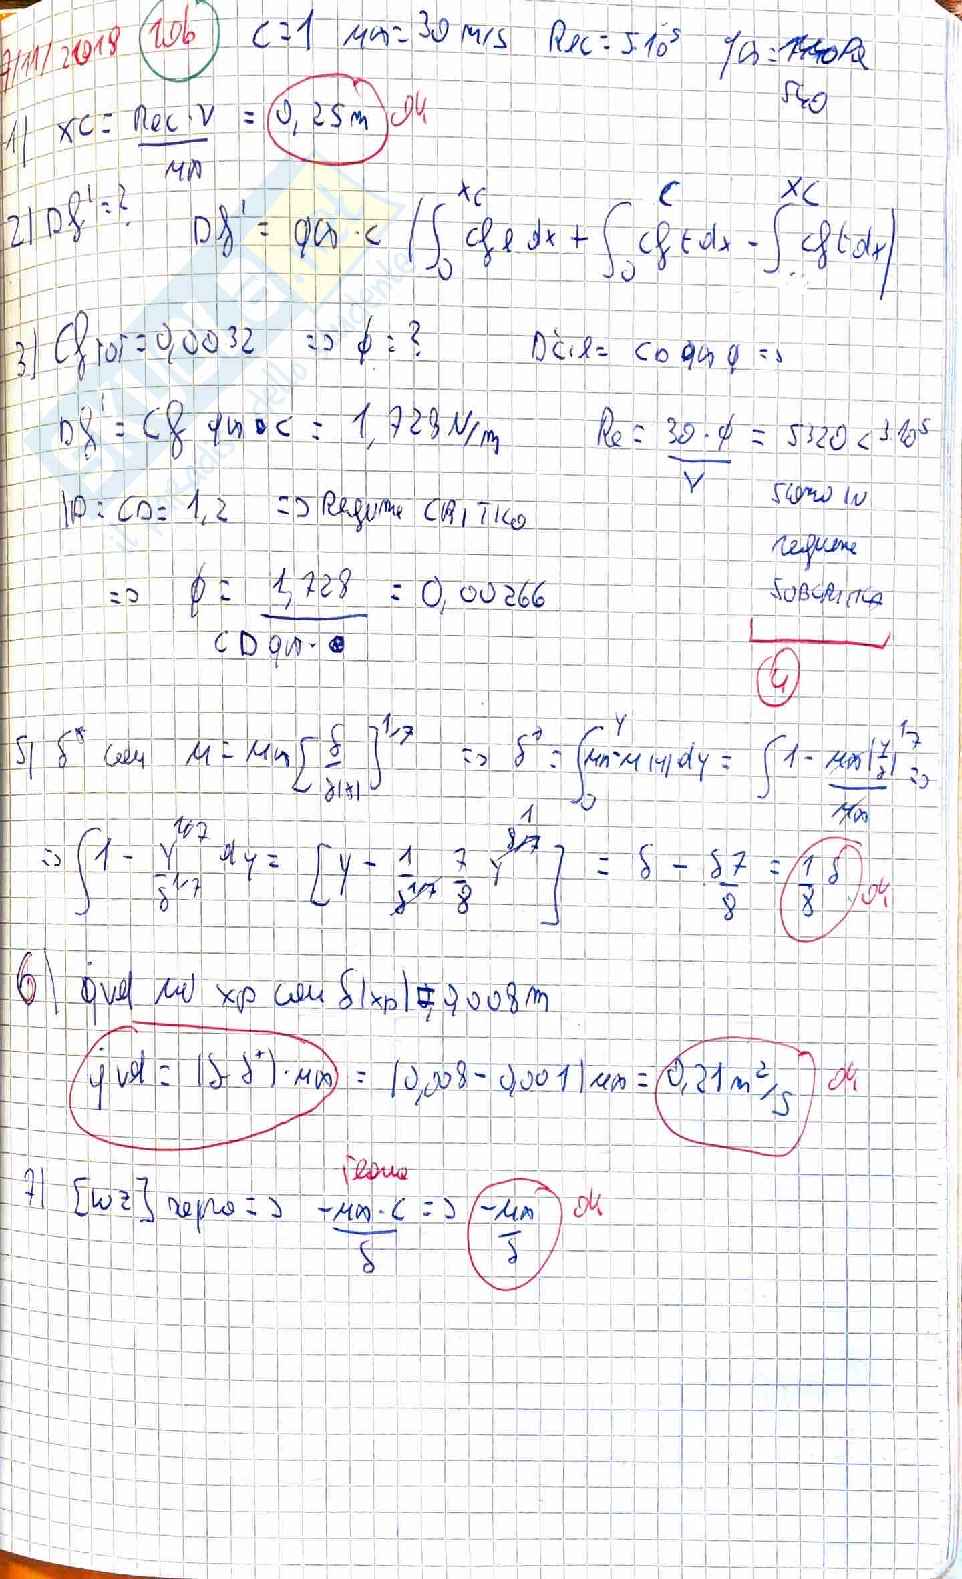 7/11/2018 106 C=1 u∞=30 m/s Rec=5·10⁵ q∞=540 Pa
1) xc = Rec·ν / u∞ = 0,25m ok
2) Df'=? Df' = q∞·c (∫₀^xc cfl dx + ∫₀^c cft dx - ∫^xc cft dx)
3) Cf tot=0,0032 => ϕ=? Dcil= CD q∞ ϕ =>
Df' = Cf q∞ · c = 1,728N/m Re = 30·ϕ / ν = 5320 < 3·10⁵
CD=1,2 => Regime CRITICO
siamo in
regime
SUBCRITICO
=> ϕ = 1,728 / CD q∞· = 0,00266
4
5) δ* con u = u∞[ / δ(x)]^1/7 => δ* = ∫₀^Y u∞-u(y)dy = ∫ 1 - u∞(y/δ)^1/7 / u∞ =>
=> ∫ 1 - y^1/7 / δ^1/7 dy = [y - 1/δ^1/7 7/8 y^8/7] = δ - δ7/8 = 1/8 δ ok
6) qvd in xp con δ(xp)=0,008m
qvd = (δ-δ*)·u∞ = (0,008-0,001)u∞ = 0,21m²/s ok
7) [wz] => -u∞·c / δ => -u∞ / δ ok